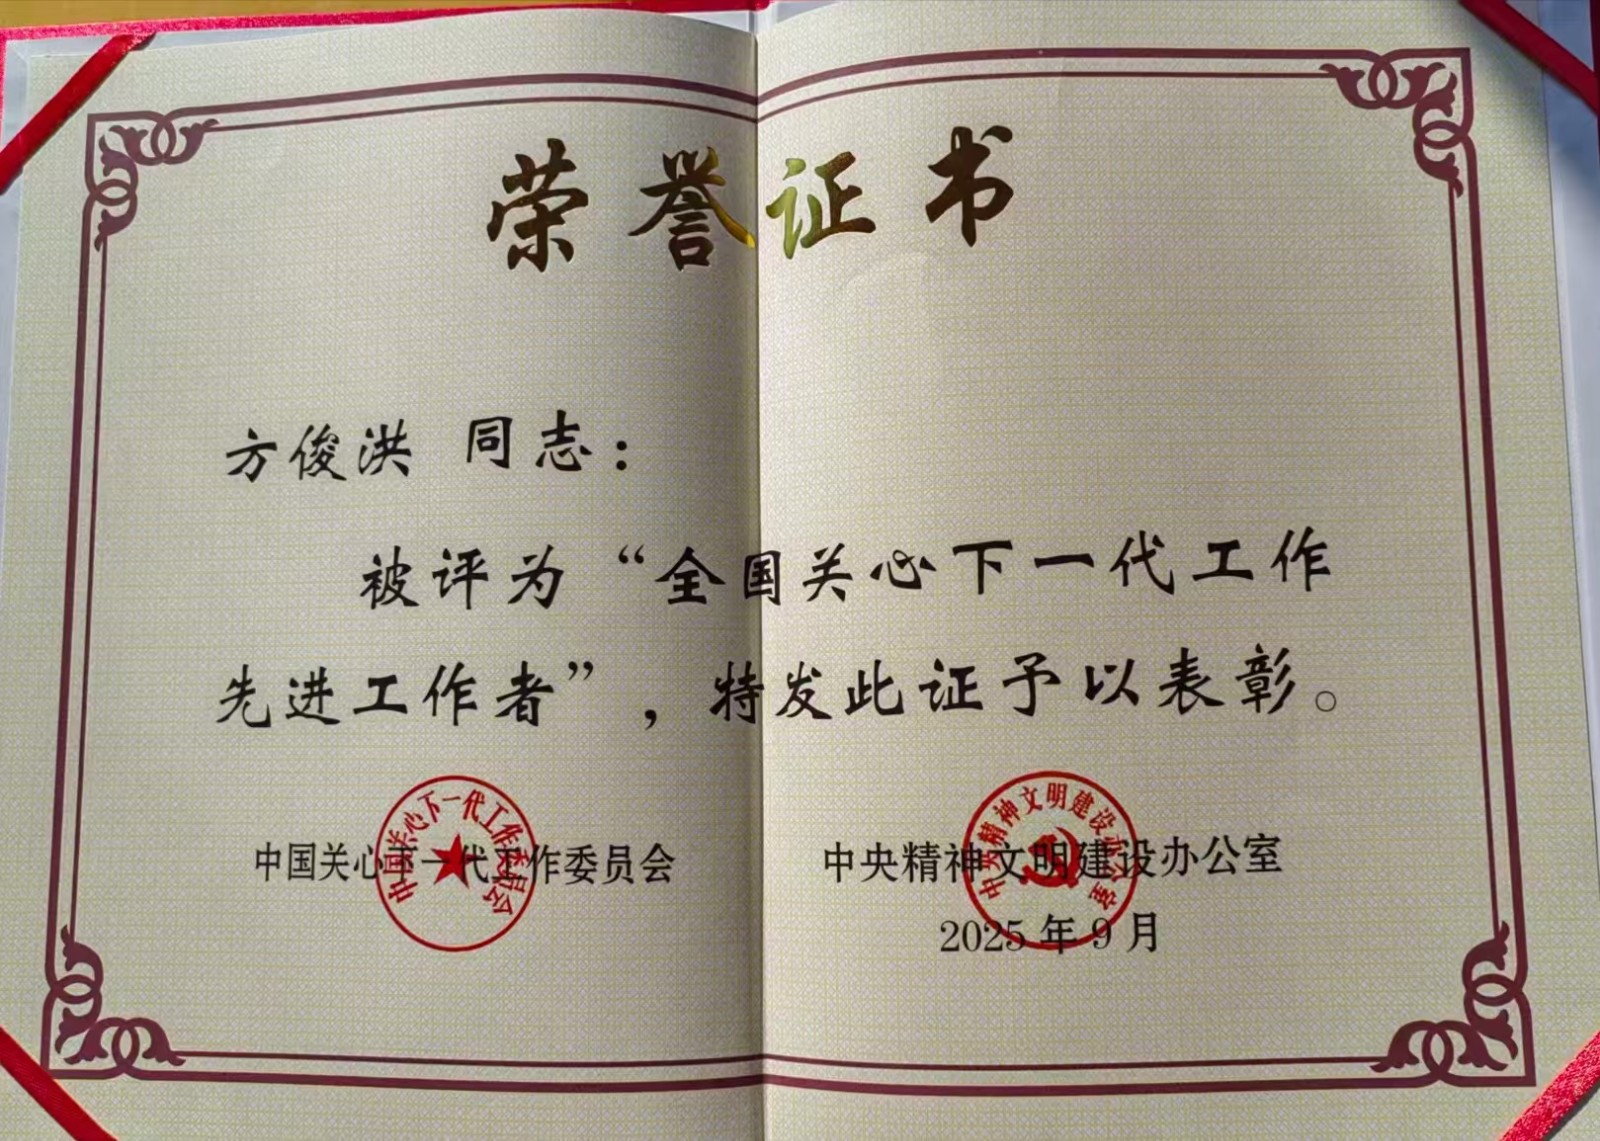 荣誉证书
方俊洪 同志：
被评为“全国关心下一代工作
先进工作者”，特发此证予以表彰。
中国关心下一代工作委员会
中国关心下一代工作委员会
中央精神文明建设办公室
中央精神文明建设办公室
2025年9月